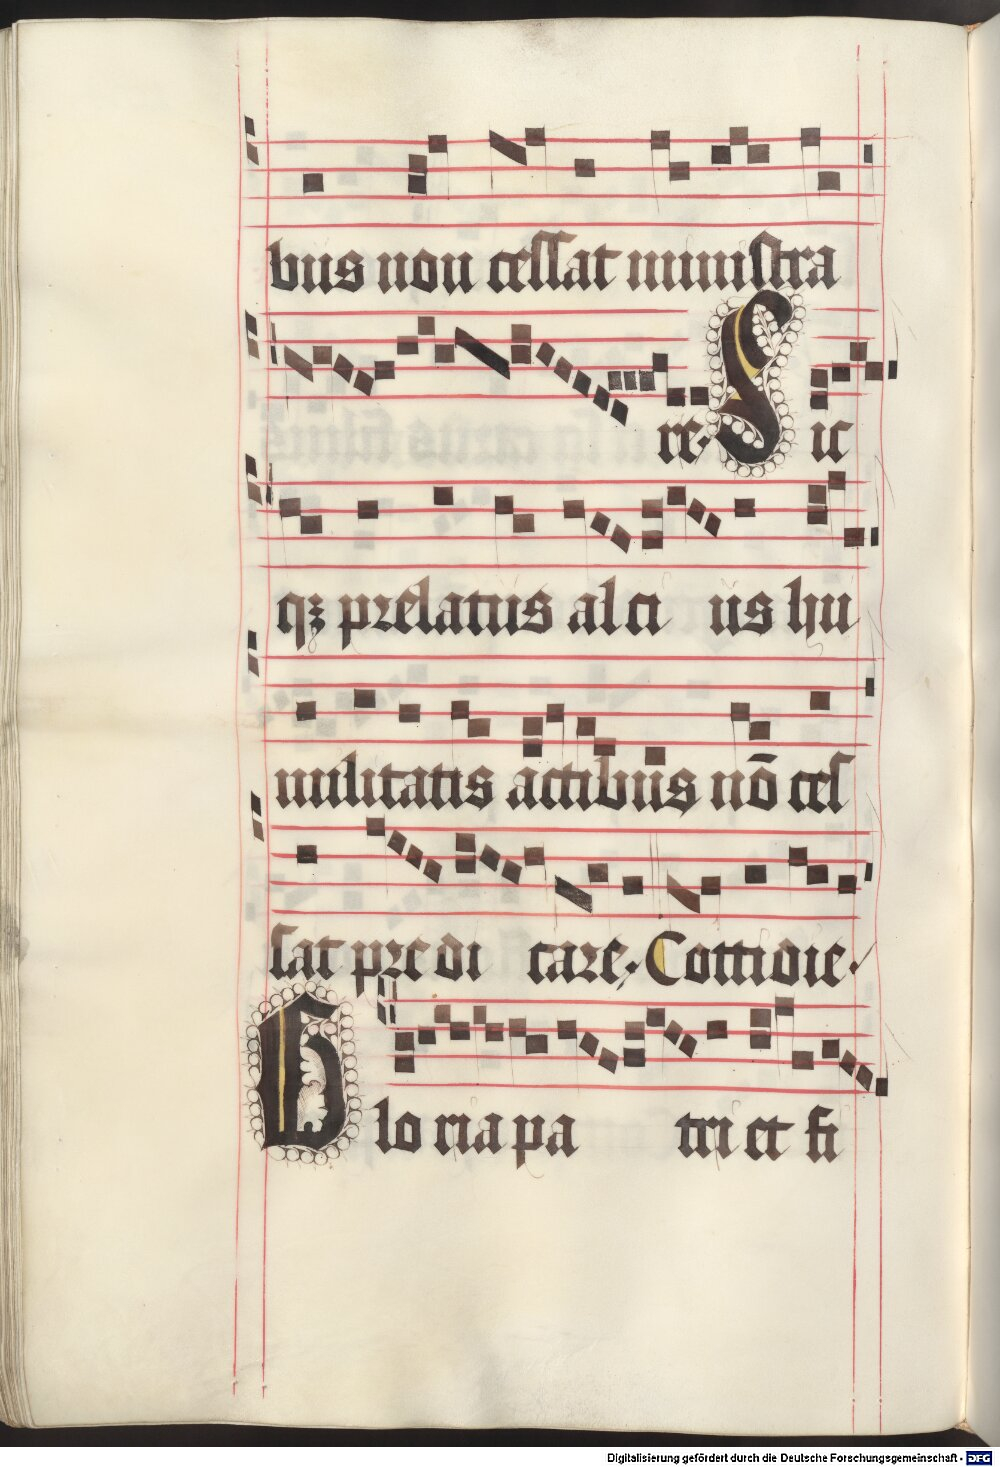 bus non cessat ministra
re. Sic
qꝫ prelatus alci us hu
militatis actibus nō ces
sat predi care. Cottidie.
Glo ria pa tri et fi
Digitalisierung gefördert durch die Deutsche Forschungsgemeinschaft - DFG